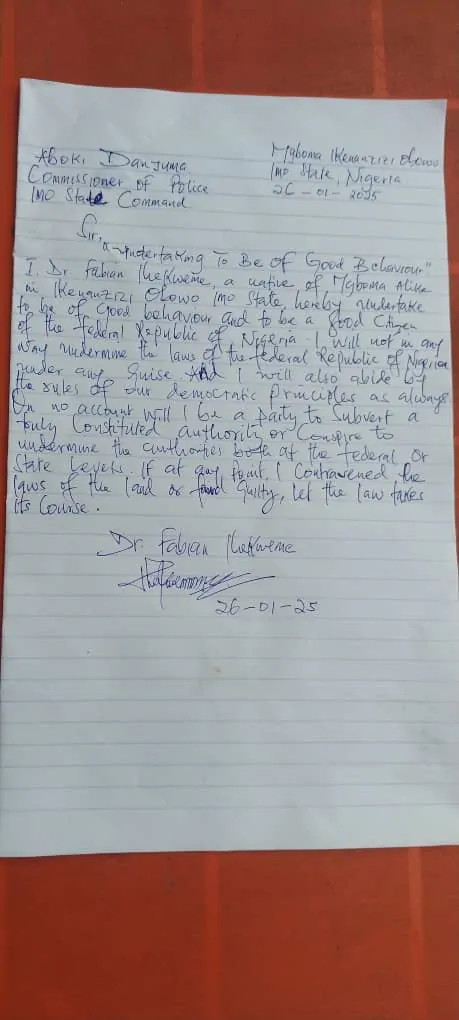 Aboki Danjuma
Commissioner of Police
Imo State Command
Mgboma Ikenanzizi Obowo
Imo State, Nigeria
26-01-2025
Sir,
"Undertaking To Be of Good Behaviour"
I, Dr. Fabian Ihekweme, a native of Mgboma Alike
in Ikenanzizi Obowo Imo State, hereby undertake
to be of Good behaviour and to be a good Citizen
of the Federal Republic of Nigeria. I will not in any
way undermine the laws of the federal Republic of Nigeria
under any guise. And I will also abide by
the rules of our democratic principles as always
On no account will I be a party to Subvert a
truly Constituted authority or Conspire to
undermine the authorities both at the federal or
State Levels. If at any point, I Contravened the
laws of the land or found Guilty, let the law takes
its Course.
Dr. Fabian Ihekweme
26-01-25